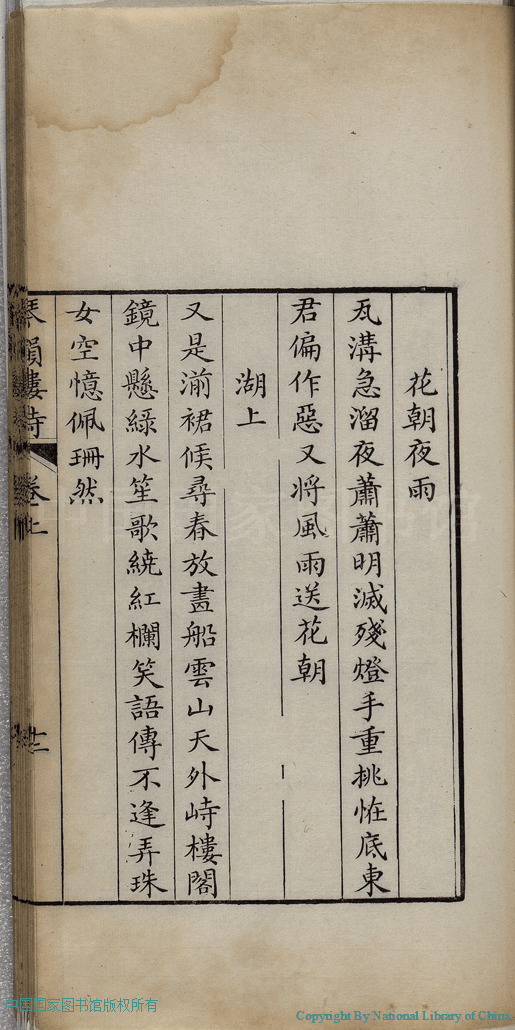 花朝夜雨
瓦溝急溜夜蕭蕭明滅殘燈手重挑恠底東
君偏作惡又將風雨送花朝
湖上
又是湔裙候尋春放畫船雲山天外峙樓閣
鏡中懸綠水笙歌繞紅欄笑語傳不逢弄珠
女空憶佩珊然
琴韻樓詩 卷上 十二
中国国家图书馆版权所有
Copyright By National Library of China